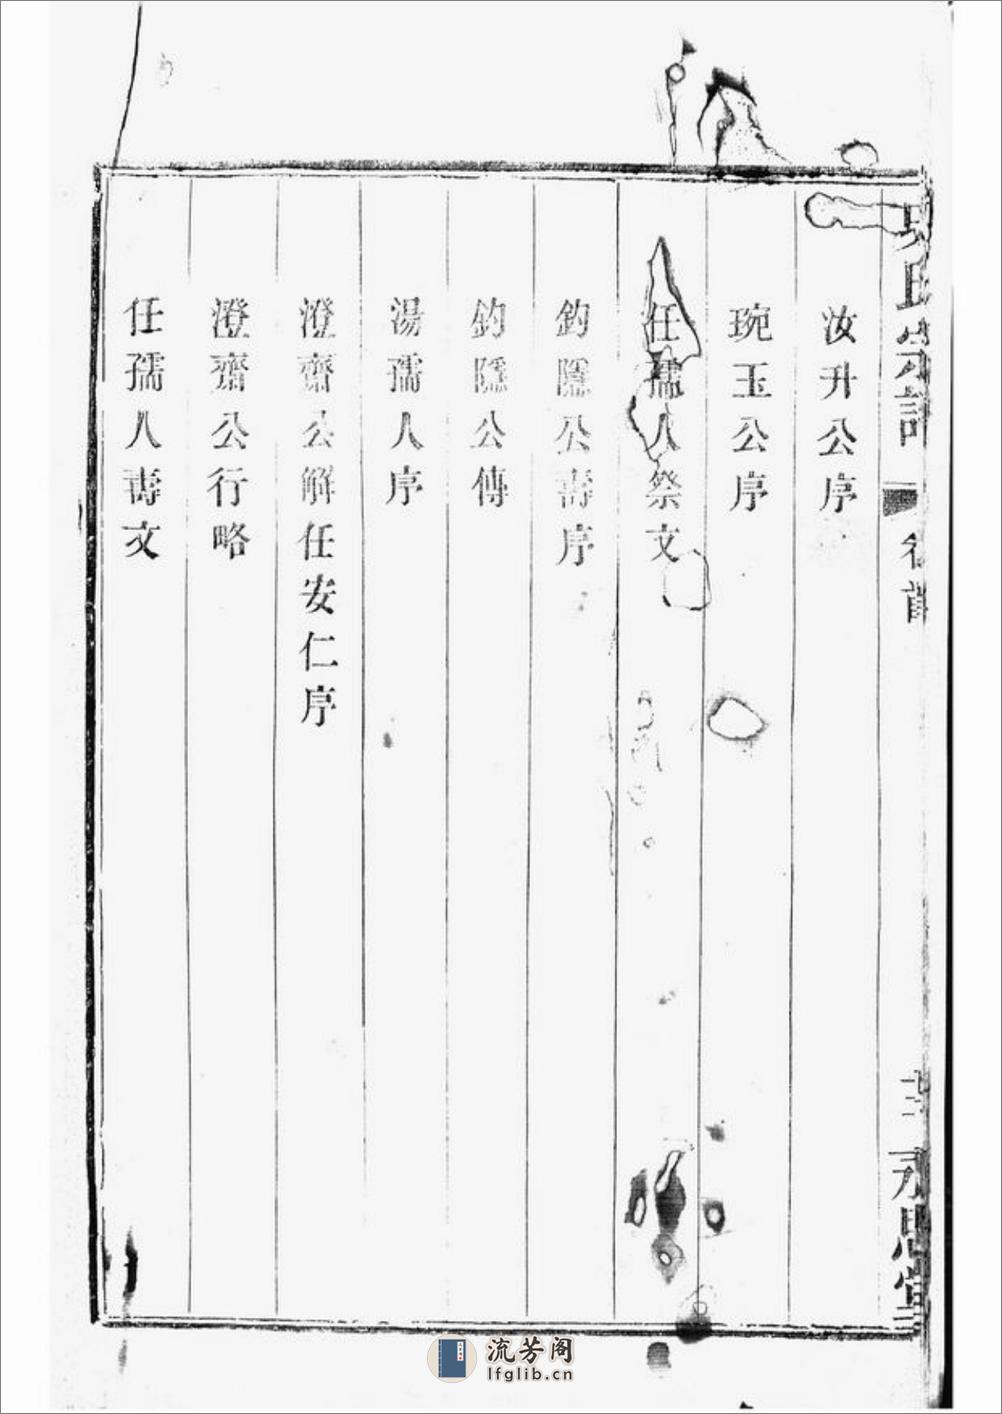 汝升公序
琬玉公序
任孺人祭文
釣隱公壽序
釣隱公傳
湯孺人序
澄齋公解任安仁序
澄齋公行略
任孺人壽文
氏宗譜
卷首
永思堂
流芳阁
lfglib.cn